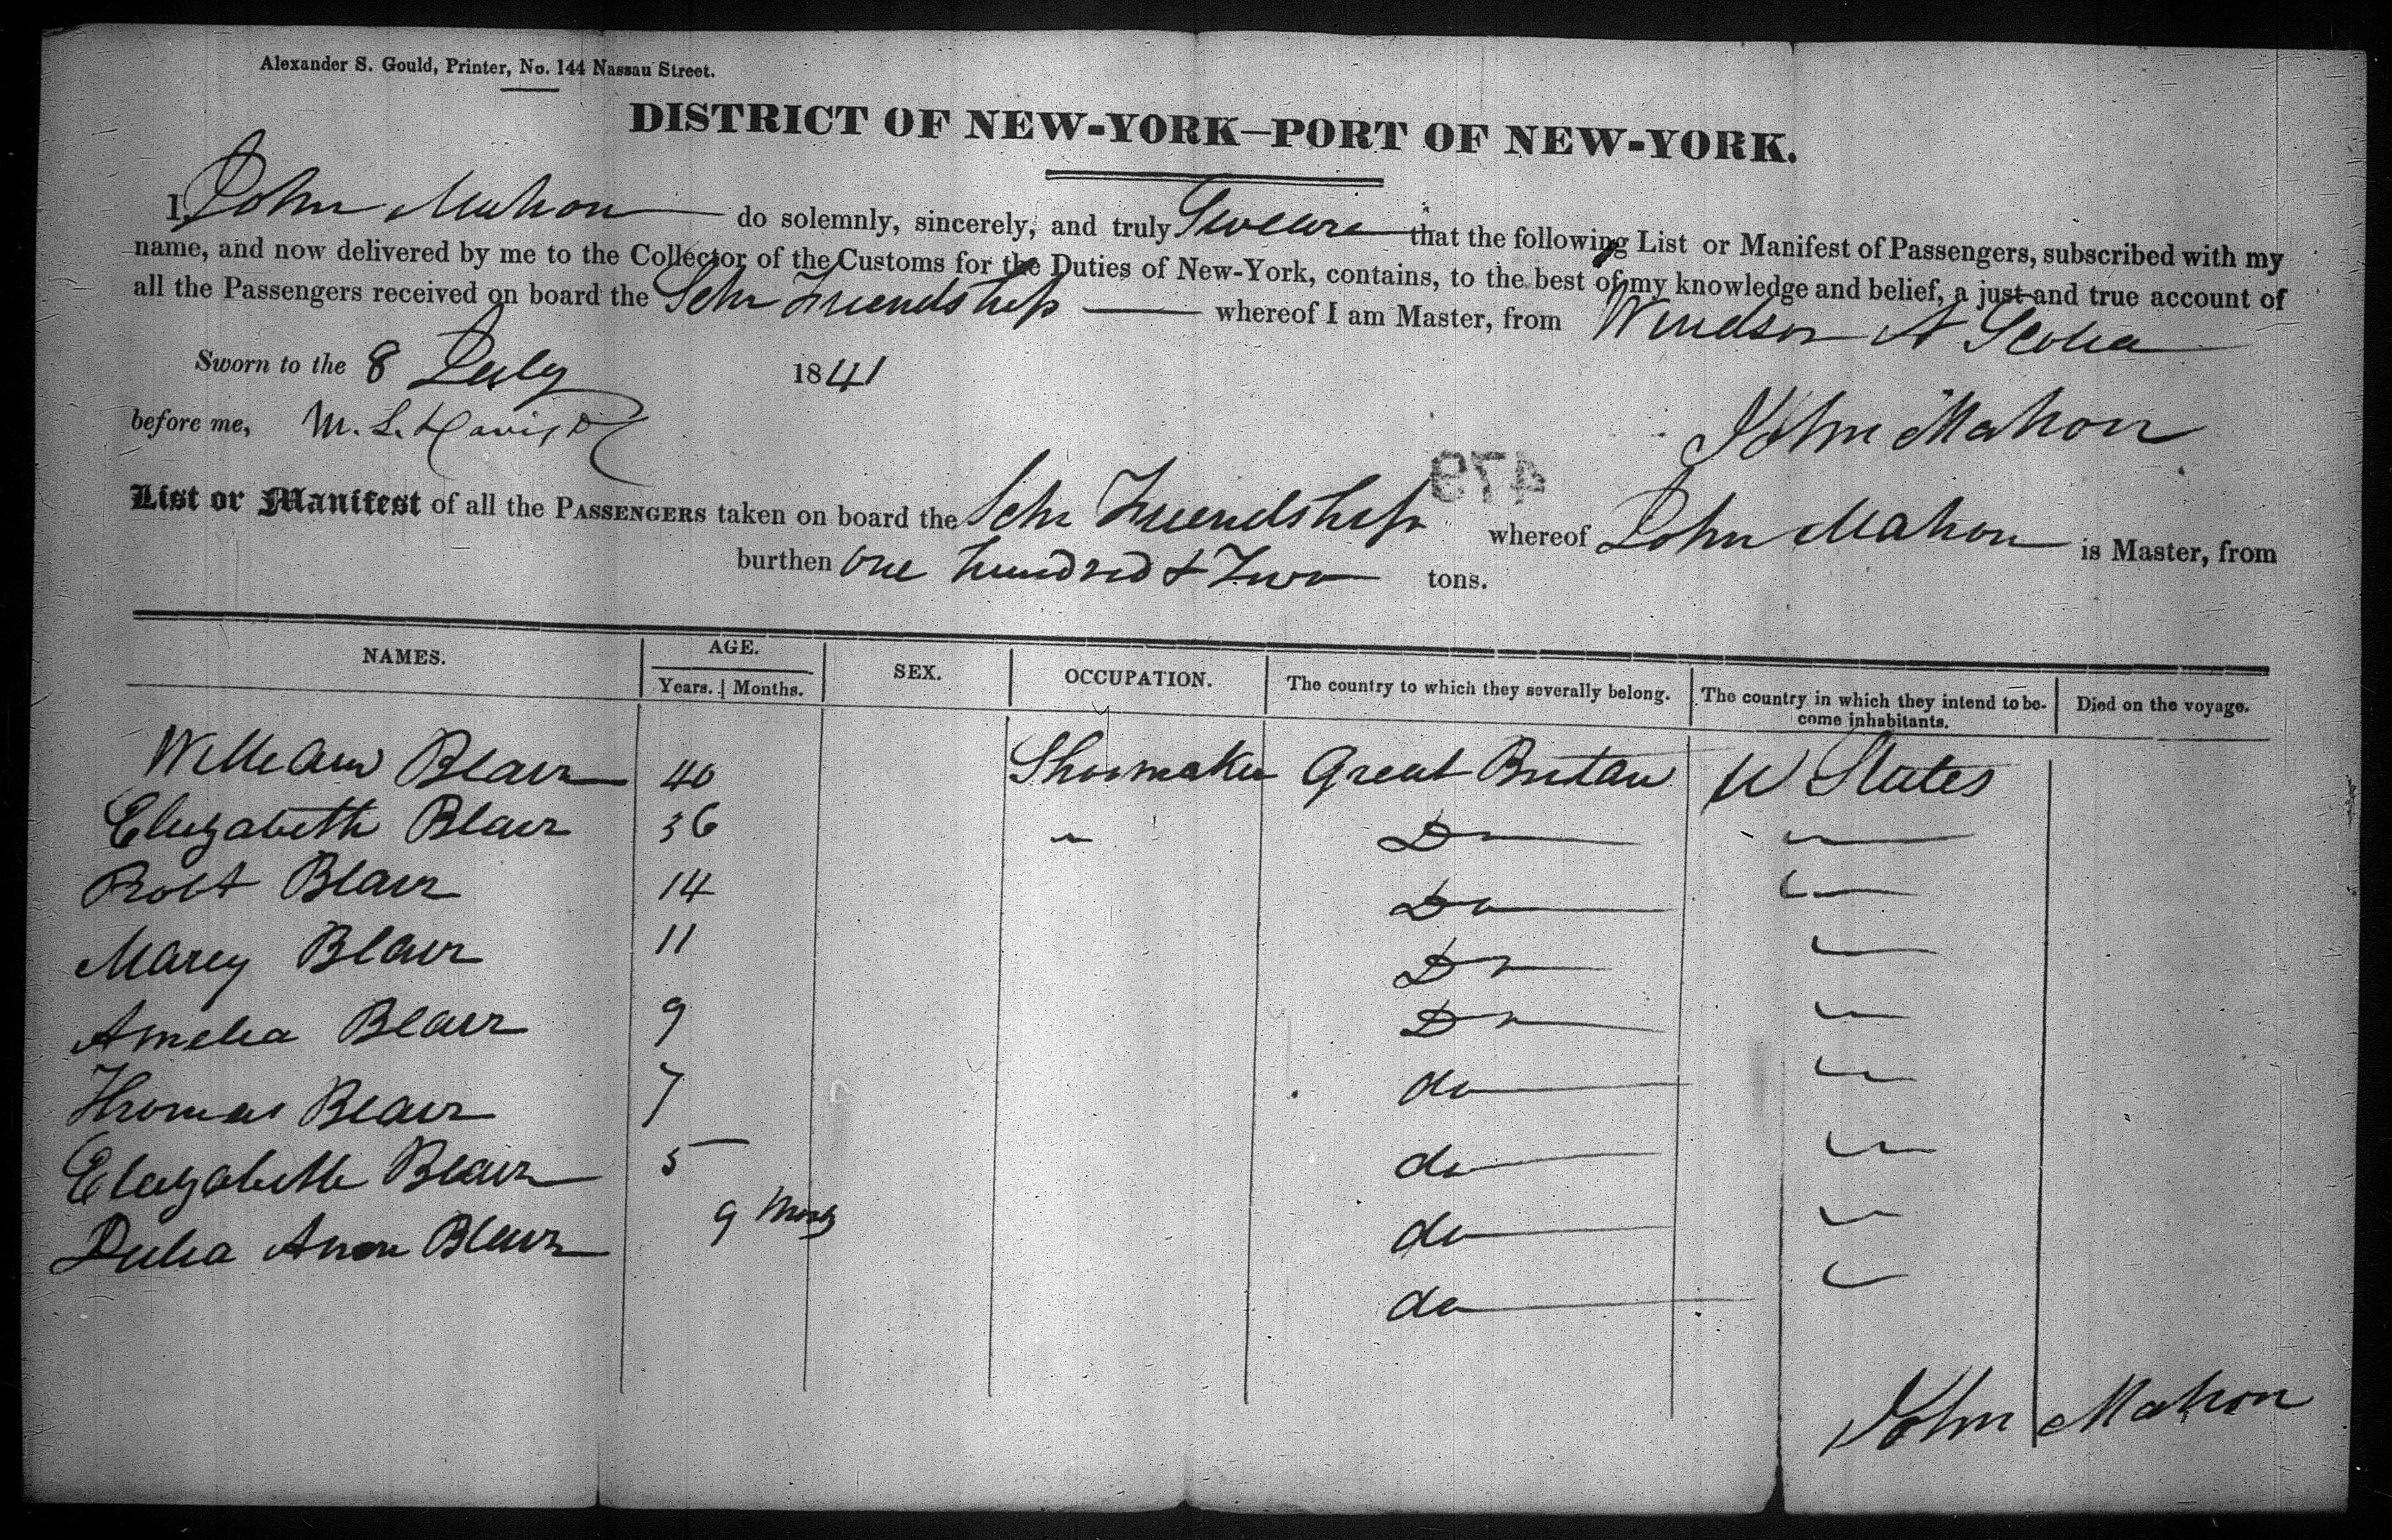 Alexander S. Gould, Printer, No. 144 Nassau Street.
DISTRICT OF NEW-YORK—PORT OF NEW-YORK.
I, John Mahon do solemnly, sincerely, and truly Sweare that the following List or Manifest of Passengers, subscribed with my
name, and now delivered by me to the Collector of the Customs for the Duties of New-York, contains, to the best of my knowledge and belief, a just and true account of
all the Passengers received on board the Schr Friendship whereof I am Master, from Windsor N Scotia
Sworn to the 8 July 1841
before me, M. L. Davis
John Mahon
479
List or Manifest of all the PASSENGERS taken on board the Schr Friendship whereof John Mahon is Master, from
burthen one hundred & Two tons.
NAMES. AGE. SEX. OCCUPATION. The country to which they severally belong. The country in which they intend to be- Died on the voyage.
Years. Months. come inhabitants.
William Blair 40 Shoemaker Great Britain U States
Elizabeth Blair 36 " Do "
Robt Blair 14 Do "
Marey Blair 11 Do "
Amelia Blair 9 Do "
Thomas Blair 7 do "
Elizabeth Blair 5 do "
Julia Ann Blair 9 Months do "
do "
John Mahon